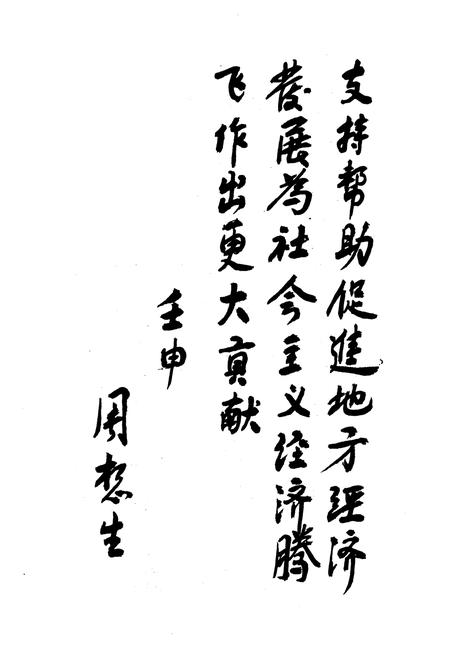 支持帮助促進地方經济
发展為社会主义經济腾
飞作出更大貢献
壬申
周愁生